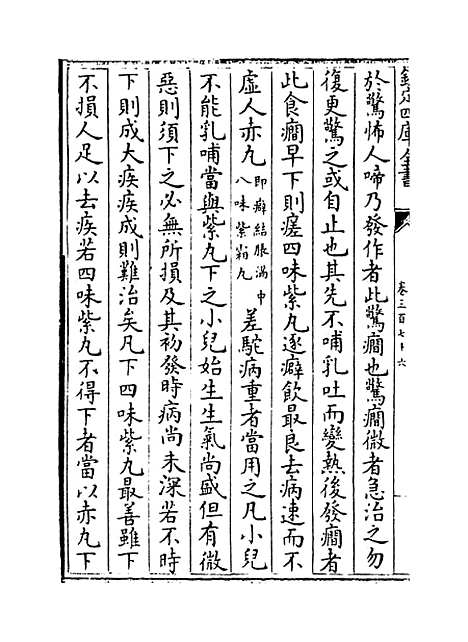 欽定四庫全書
卷三百七十六
於驚怖人啼乃發作者此驚癇也驚癇微者急治之勿
復更驚之或自止也其先不哺乳吐而變熱後發癇者
此食癇早下則瘥四味紫丸逐癖飲最良去病速而不
虛人赤丸即癖結脹滿中八味紫霜丸差駃病重者當用之凡小兒
不能乳哺當與紫丸下之小兒始生生氣尚盛但有微
惡則須下之必無所損及其初發時病尚未深若不時
下則成大疾疾成則難治矣凡下四味紫丸最善雖下
不損人足以去疾若四味紫丸不得下者當以赤丸下